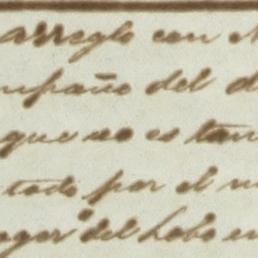 arreglo con
mpaño del d
que no es tan
todo por el
ager del Lobo en